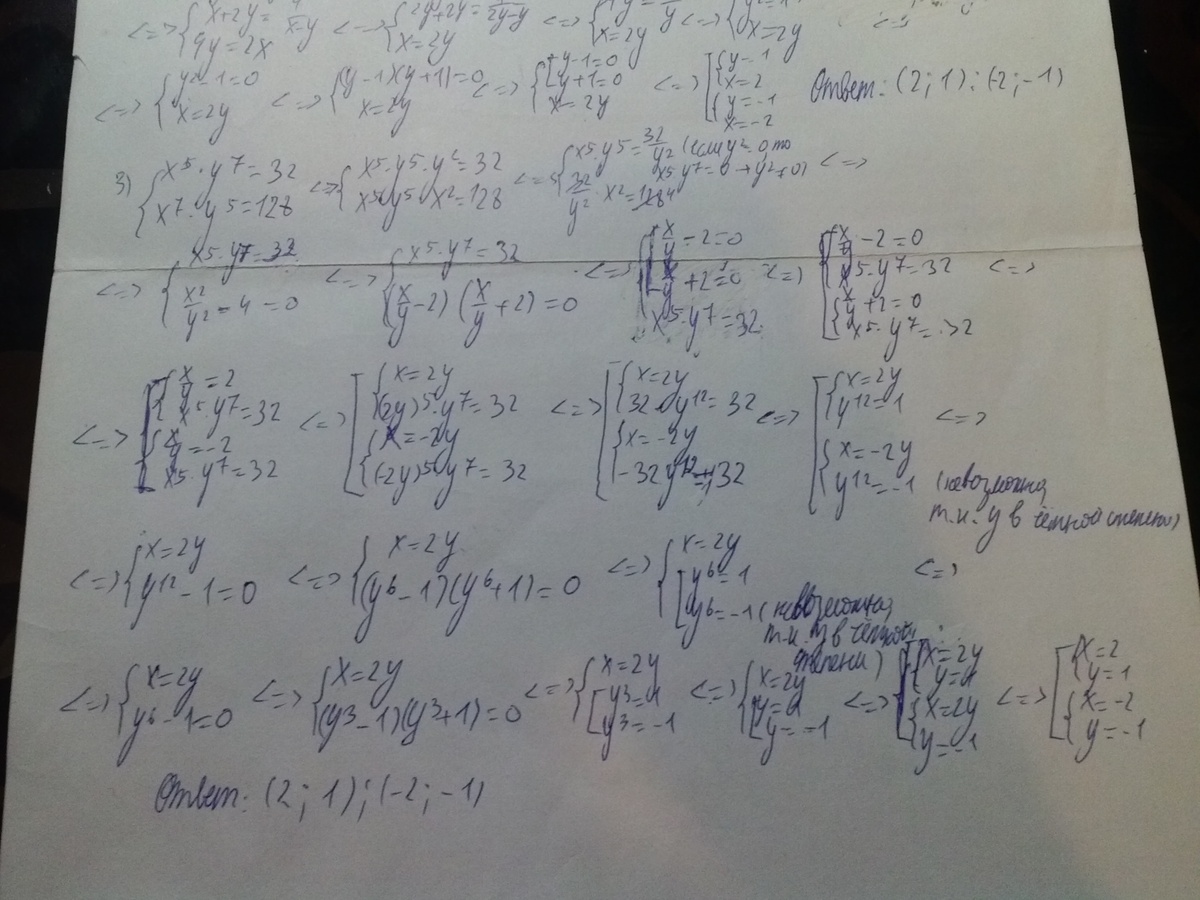 <=> { x+2y = 4/(x-y) ; 4y=2x <=> { 2y+2y = 4/(2y-y) ; x=2y <=> { x=2y <=> { x=2y <=>
<=> { y²-1=0 ; x=2y <=> { (y-1)(y+1)=0 ; x=2y <=> { [ y-1=0 ; y+1=0 ; x=2y <=> [ { y=1 ; x=2 ; { y=-1 ; x=-2 Ответ: (2; 1); (-2; -1)
3) { x⁵·y⁷=32 ; x⁷·y⁵=128 <=> { x⁵·y⁵·y²=32 ; x⁵y⁵·x²=128 <=> { x⁵·y⁵=32/y² (если y²=0 то x⁵·y⁷=0 → y²≠0) ; 32/y²·x²=128 <=>
<=> { x⁵·y⁷=32 ; x²/y² - 4 = 0 <=> { x⁵·y⁷=32 ; (x/y-2)(x/y+2)=0 <=> { [ x/y-2=0 ; x/y+2=0 ; x⁵·y⁷=32 <=> [ { x/y-2=0 ; x⁵·y⁷=32 ; { x/y+2=0 ; x⁵·y⁷=32 <=>
<=> [ { x/y=2 ; x⁵·y⁷=32 ; { x/y=-2 ; x⁵·y⁷=32 <=> [ { x=2y ; (2y)⁵·y⁷=32 ; { x=-2y ; (-2y)⁵·y⁷=32 <=> [ { x=2y ; 32·y¹²=32 ; { x=-2y ; -32y¹²=32 <=> [ { x=2y ; y¹²=1 ; { x=-2y ; y¹²=-1 (невозможно, т.к. y в чётной степени) <=>
<=> { x=2y ; y¹²-1=0 <=> { x=2y ; (y⁶-1)(y⁶+1)=0 <=> { x=2y ; [ y⁶=1 ; y⁶=-1 (невозможно, т.к. y в чётной степени) <=>
<=> { x=2y ; y⁶-1=0 <=> { x=2y ; (y³-1)(y³+1)=0 <=> { x=2y ; [ y³=1 ; y³=-1 <=> { x=2y ; [ y=1 ; y=-1 <=> [ { x=2y ; y=1 ; { x=2y ; y=-1 <=> [ { x=2 ; y=1 ; { x=-2 ; y=-1
Ответ: (2; 1); (-2; -1)